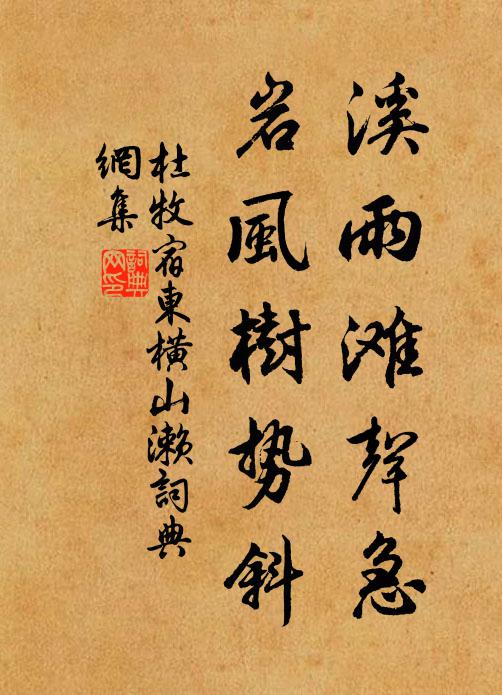 溪雨滩聲急
岩風樹势斜
杜牧宿東横山瀨詞典
網集
詞典
网印